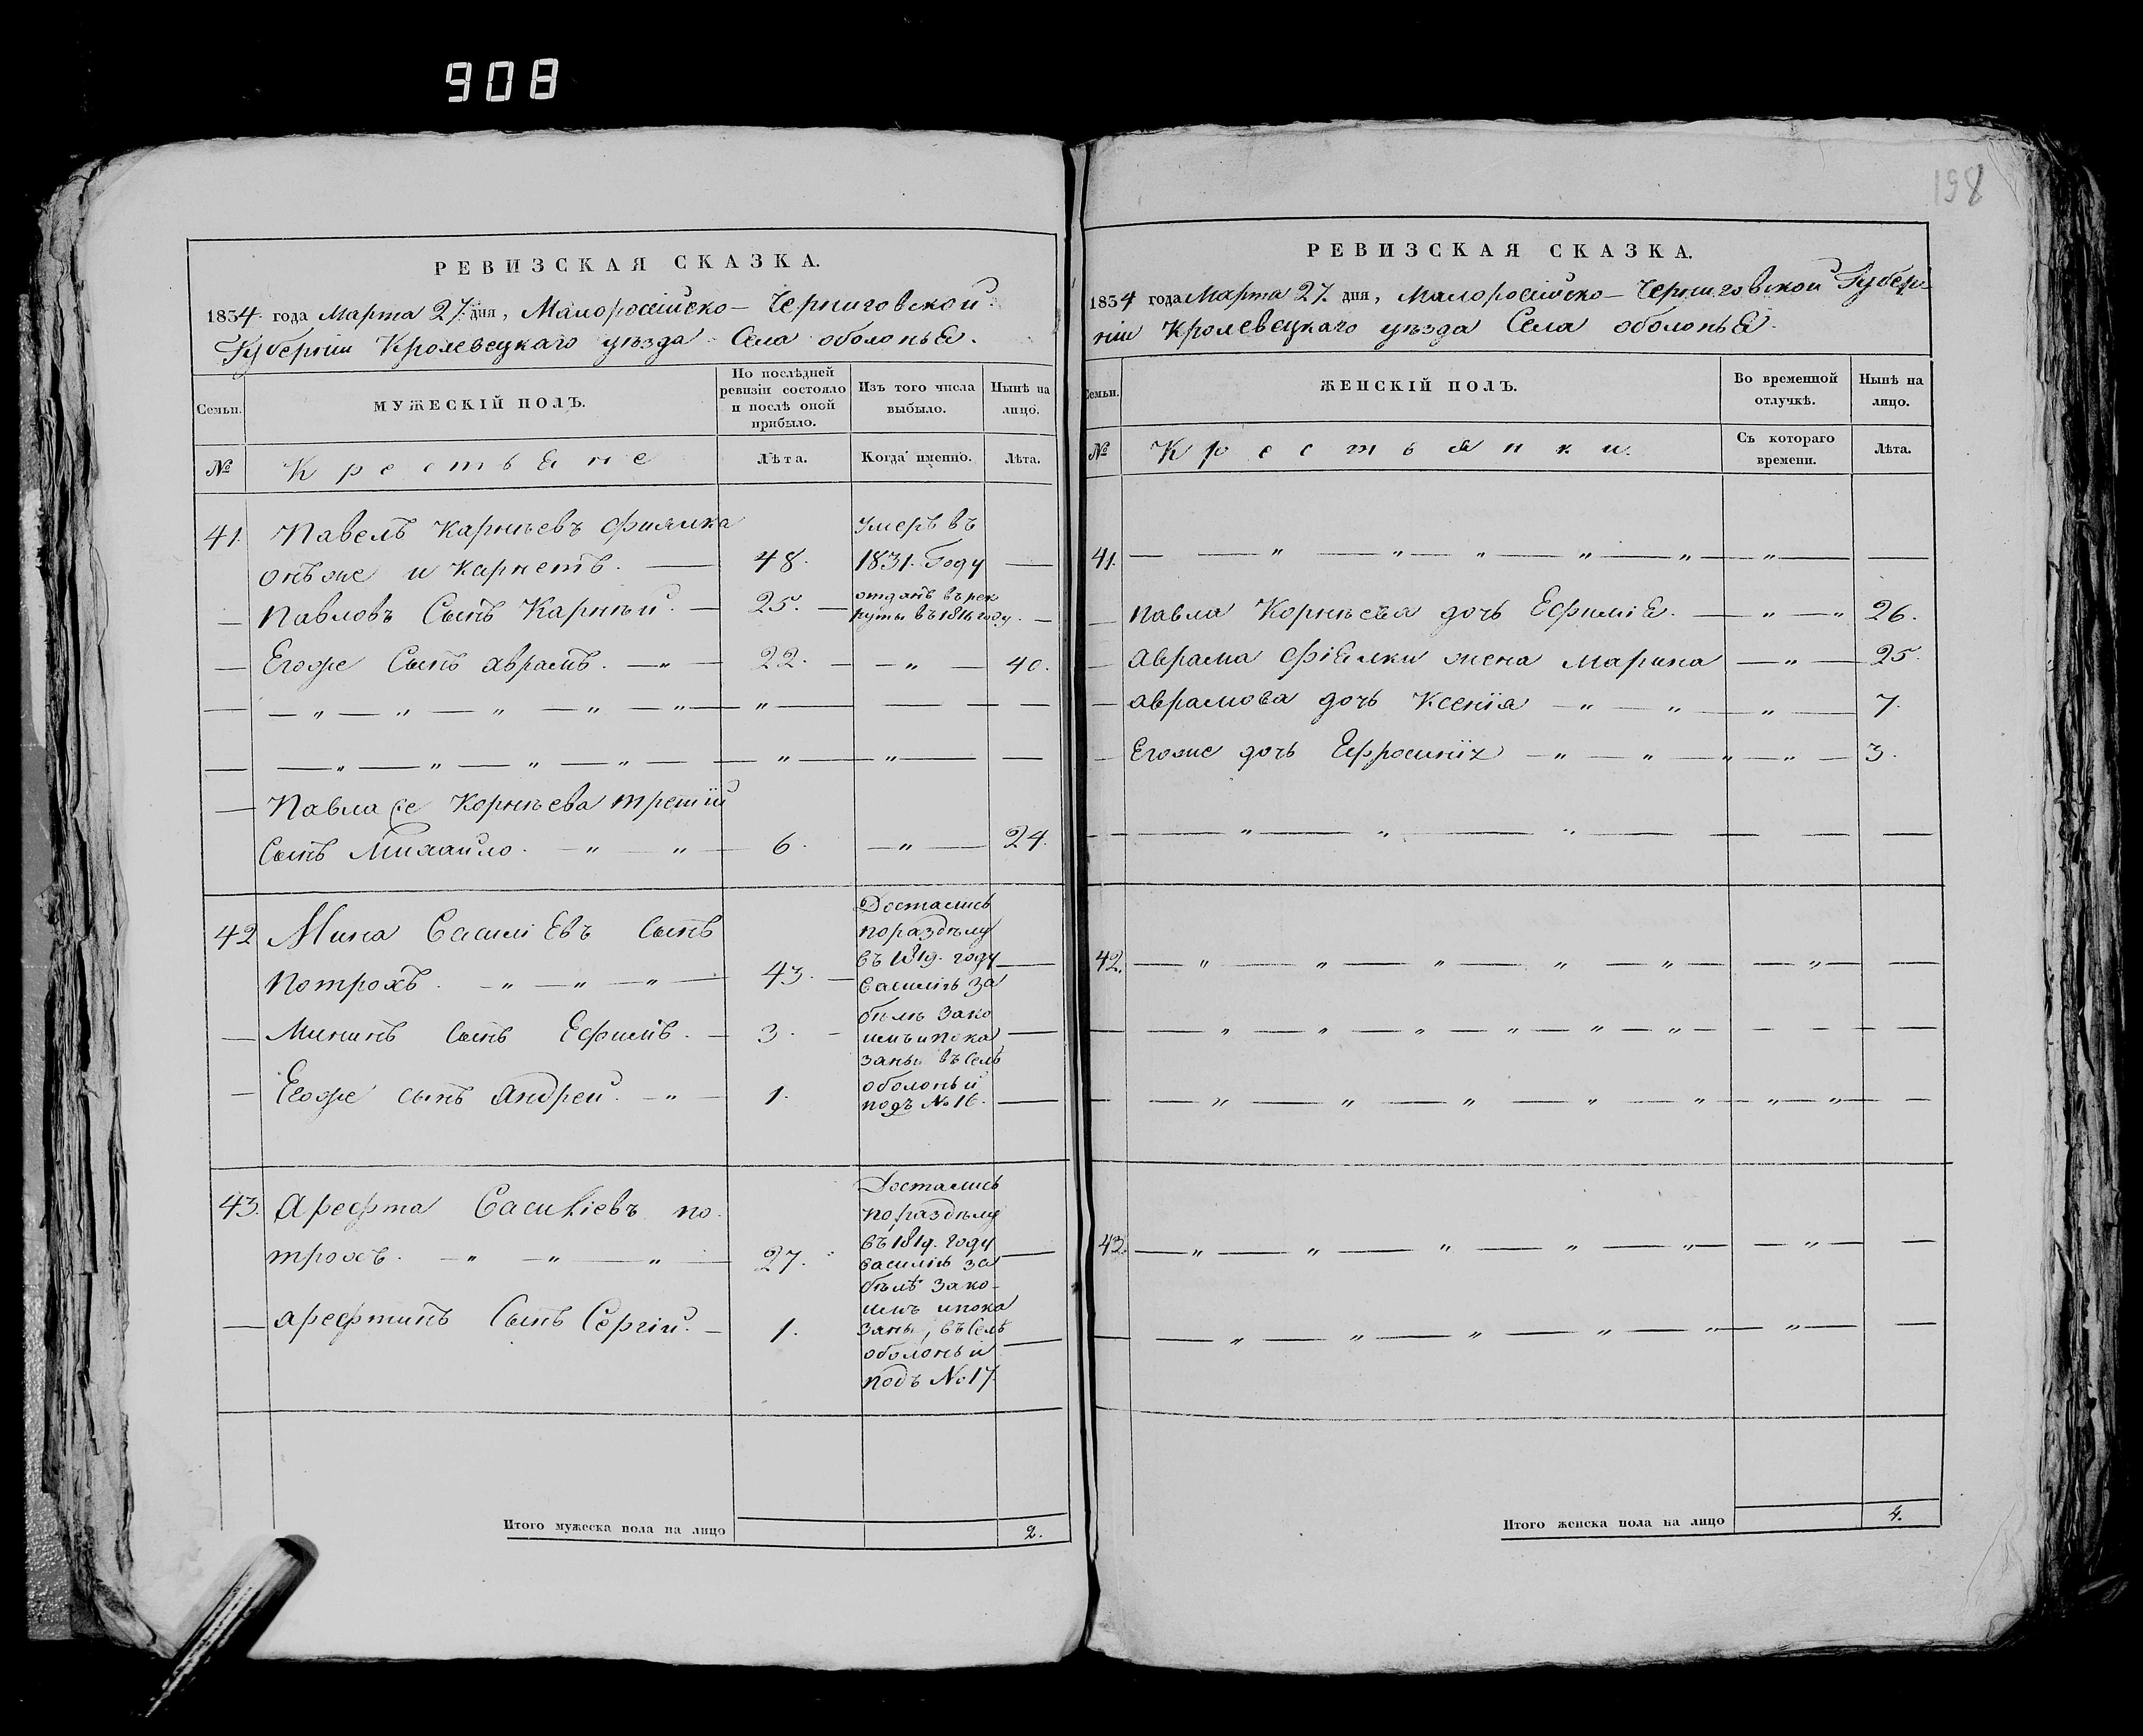 908
198
РЕВИЗСКАЯ СКАЗКА.
1834. года Марта 27. дня, Малоросійско – Черниговской
Губерніи Кролевецкаго уѣзда Села оболонья.
Семьи.
МУЖЕСКІЙ ПОЛЪ.
По послѣдней
ревизіи состояло
и послѣ оной
прибыло.
Изъ того числа
выбыло.
Нынѣ на
лицо.
№
Крестьяне
Лѣта.
Когда именно.
Лѣта.
41. Павелъ Карнѣевъ фиялка
умеръ въ
онъже и Карнетъ. — 48. 1831. Году —
— Павловъ Сынъ Карнѣй. — 25. —
отданъ въ рек
руты въ 1816 году. —
— Егоже Сынъ аврамъ. — „ — 22. — — „ — 40.
— — „ — „ — „ — „ — „ — „ — — — —
— — „ — „ — „ — „ — — „ — „ — —
— Павла же Корнѣева третій
Сынъ Михайло. — „ — „ — 6. — „ — 24.
42 Мина Василіевъ Сынъ
Потрохъ. — „ — „ — „ — 43. —
Достались
по раздѣлу
въ 1819. году —
василію за
— Мининъ Сынъ Ефимъ. — 3. —
бѣлѣ зако
имъ и пока —
заны въ Селѣ
— Егоже сынъ андрей. — „ — 1.
оболоньи
подъ № 16. —
43. Арефта Василіевъ по
трохъ. — „ — „ — „ — 27.
Достались
по раздѣлу
въ 1819. году —
василію за
бѣлѣ зако-
имъ и пока
— арефтинъ Сынъ Сергій. — 1.
заны, въ Селѣ
оболоньи —
подъ № 17
Итого мужеска пола на лицо 2.
РЕВИЗСКАЯ СКАЗКА.
1834 года Марта 27. дня, Малоросійско – Черниговской Губер-
ніи Кролевецкаго уѣзда Села оболонья.
Семьи.
ЖЕНСКІЙ ПОЛЪ.
Во временной
отлучкѣ.
Нынѣ на
лицо.
№
Крестьянки.
Съ котораго
времени.
Лѣта.
41. — — „ — „ — „ — „ — „ — „ — —
— Павла Корнѣева дочь Ефимія. — „ — „ 26.
— Аврама фіялки жена Марина — „ — 25.
— аврамова дочь Ксенія — „ — „ — „ — 7.
— Егоже дочь Ефросинія — „ — „ — „ — „ — 3.
— — „ — „ — „ — — — —
42. — „ — „ — „ — „ — „ — — „ — —
— — „ — „ — „ — „ — „ — „ — — — — —
— — „ — „ — „ — „ — „ — „ — „ — —
43. — „ — „ — „ — „ — „ — — „ — —
— — „ — „ — „ — „ — „ — „ — —
Итого женска пола на лицо 4.